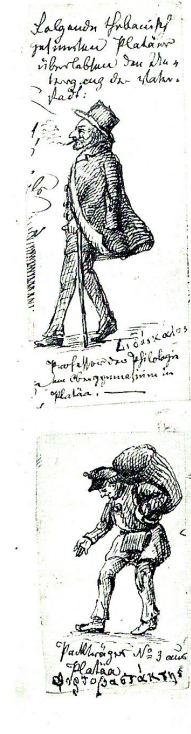 Folgende thebanisch
gesinnten Platäer
überlebten den Un-
tergang der Vater-
stadt:
Διδάσκαλος
Professor der Philologie
am Obergymnasium in
Platäa.
Packträger No 3 aus
Platäa
Φορτοβαστάκτης